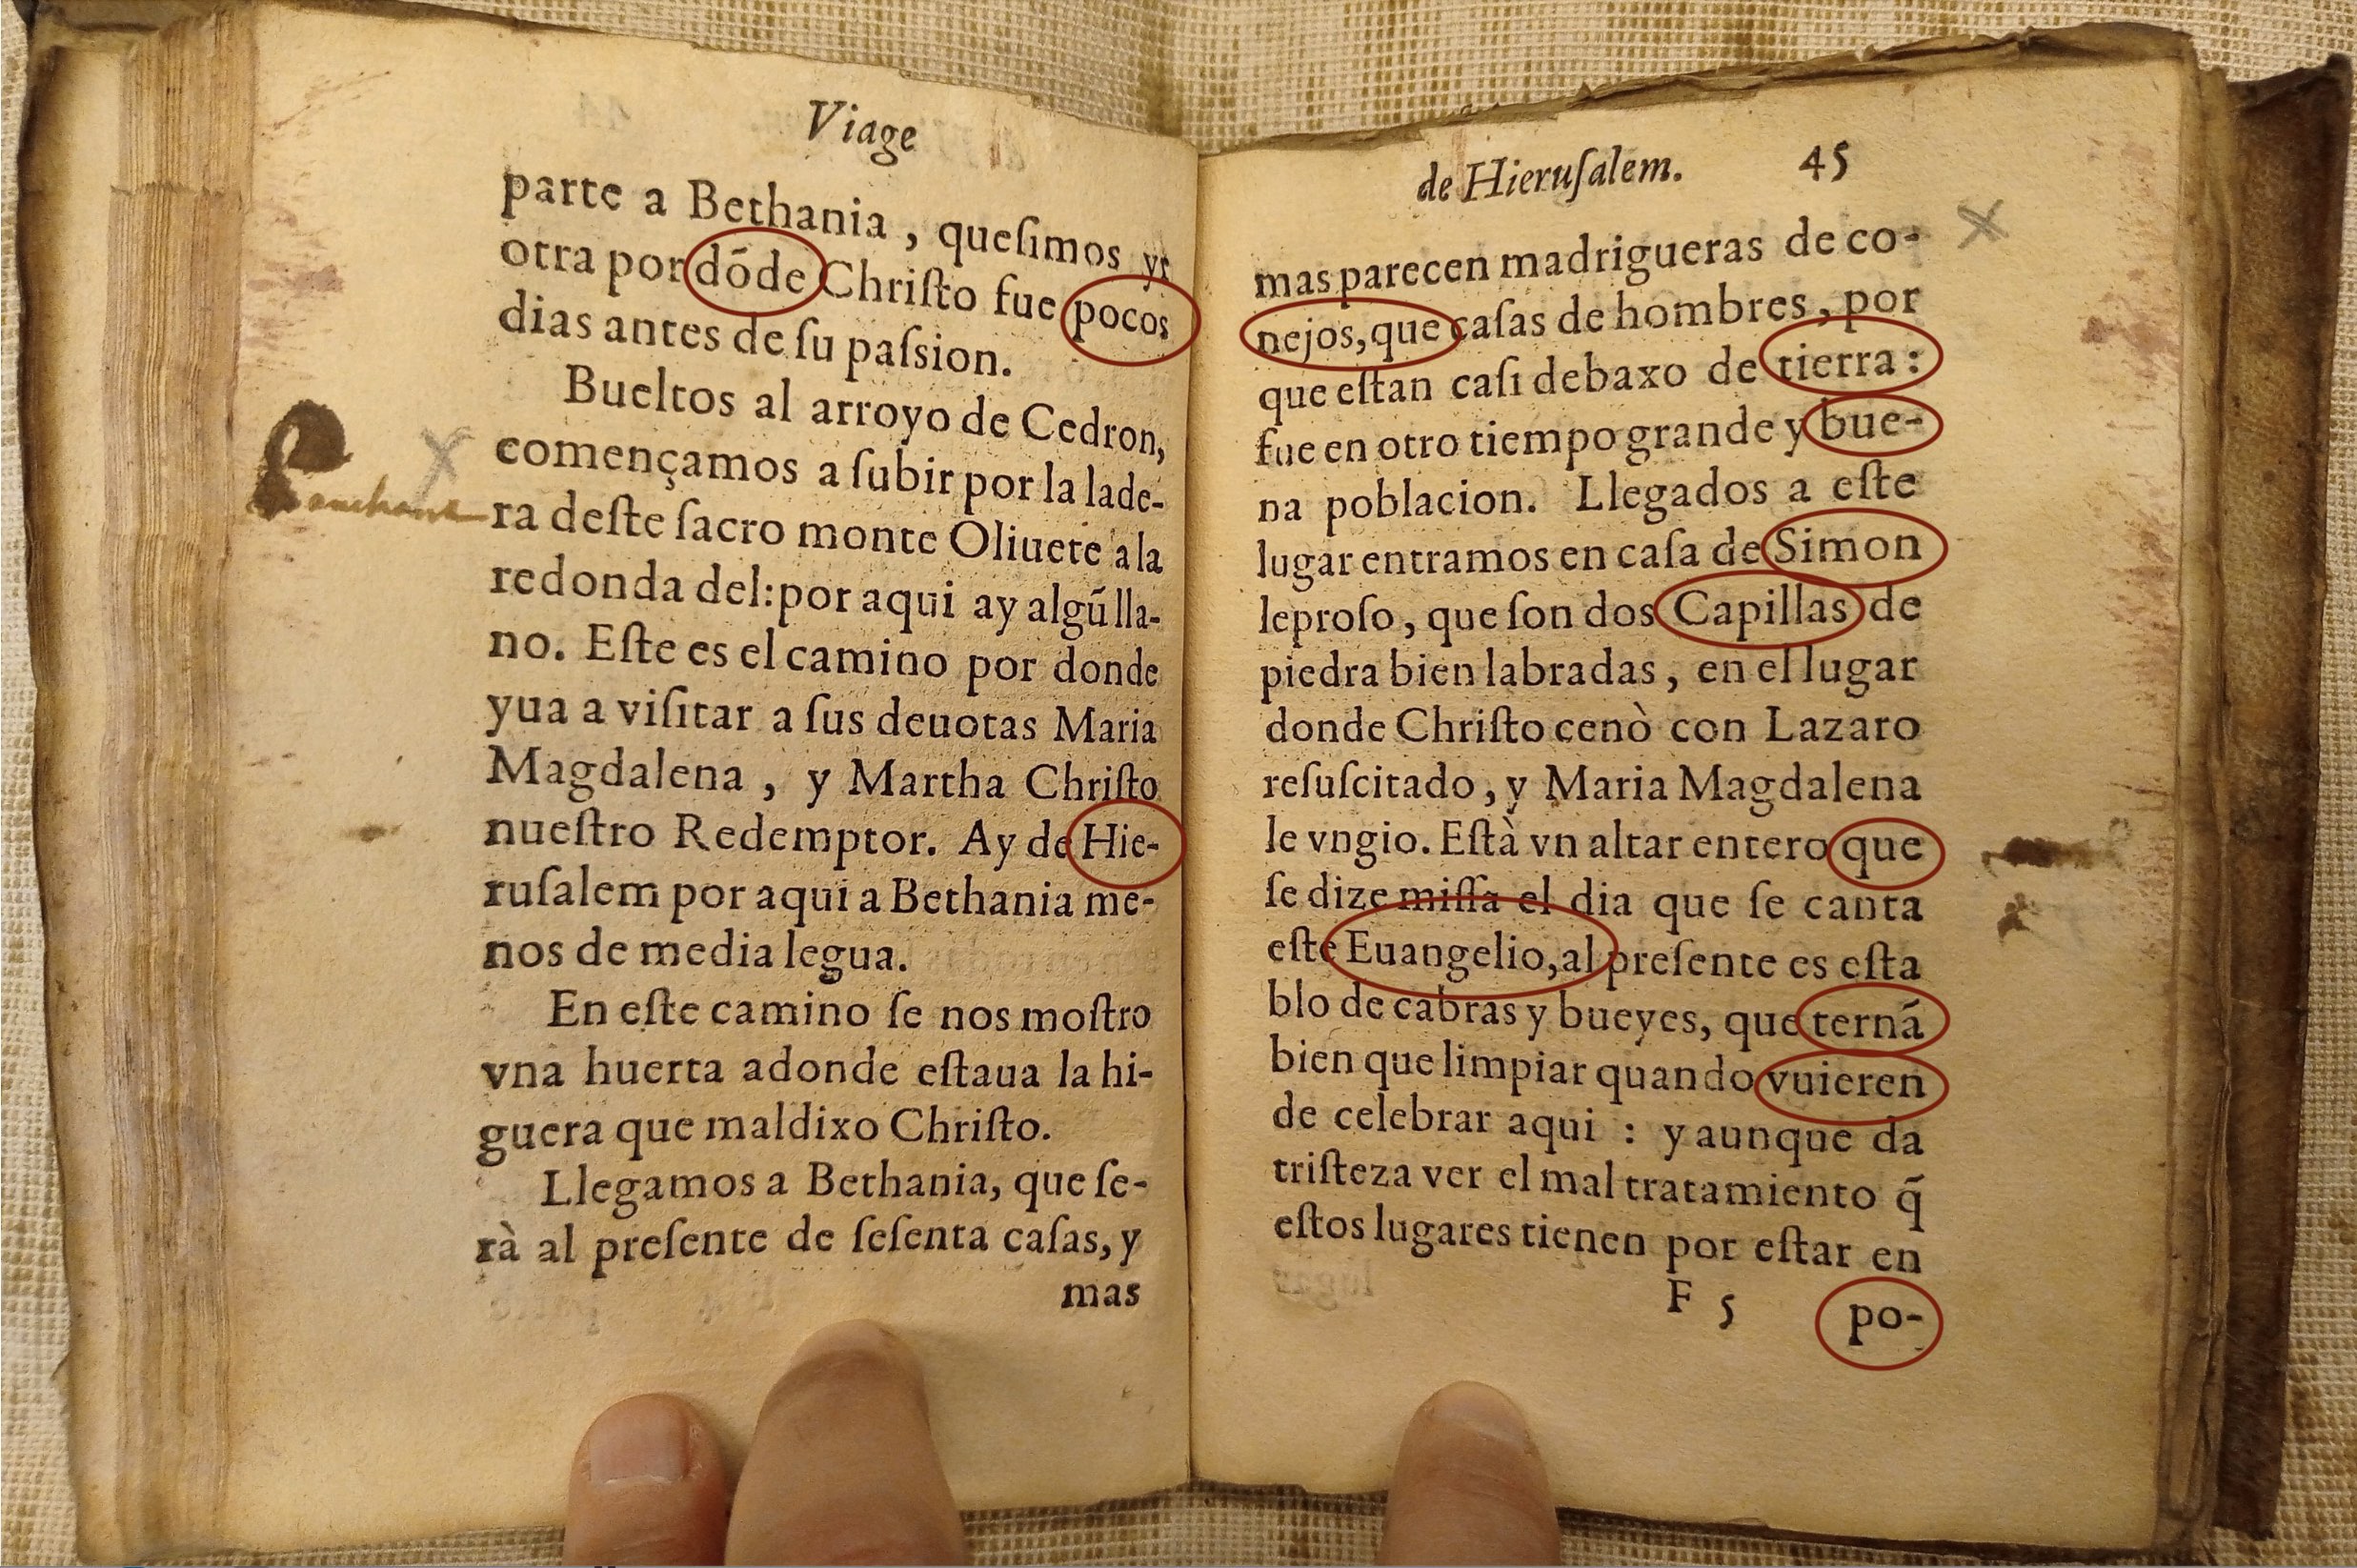 Viage
parte a Bethania , queſimos yr
otra por dōde Chriſto fue pocos
dias antes de ſu paſsion.
Bueltos al arroyo de Cedron,
començamos a ſubir por la lade-
ra deſte ſacro monte Oliuete a la
redonda del:por aqui ay algū lla-
no. Eſte es el camino por donde
yua a viſitar a ſus deuotas Maria
Magdalena , y Martha Chriſto
nueſtro Redemptor. Ay de Hie-
ruſalem por aqui a Bethania me-
nos de media legua.
En eſte camino ſe nos moſtro
vna huerta adonde eſtaua la hi-
guera que maldixo Chriſto.
Llegamos a Bethania, que ſe-
rà al preſente de ſeſenta caſas, y
mas
de Hieruſalem. 45
mas parecen madrigueras de co-
nejos, que caſas de hombres , por
que eſtan caſi debaxo de tierra :
fue en otro tiempo grande y bue-
na poblacion. Llegados a eſte
lugar entramos en caſa de Simon
leproſo , que ſon dos Capillas de
piedra bien labradas , en el lugar
donde Chriſto cenò con Lazaro
reſuſcitado , y Maria Magdalena
le vngio. Eſtà vn altar entero que
ſe dize miſſa el dia que ſe canta
eſte Euangelio, al preſente es eſta
blo de cabras y bueyes, que ternā
bien que limpiar quando vuieren
de celebrar aqui : y aunque da
triſteza ver el mal tratamiento q̄
eſtos lugares tienen por eſtar en
F 5 po-